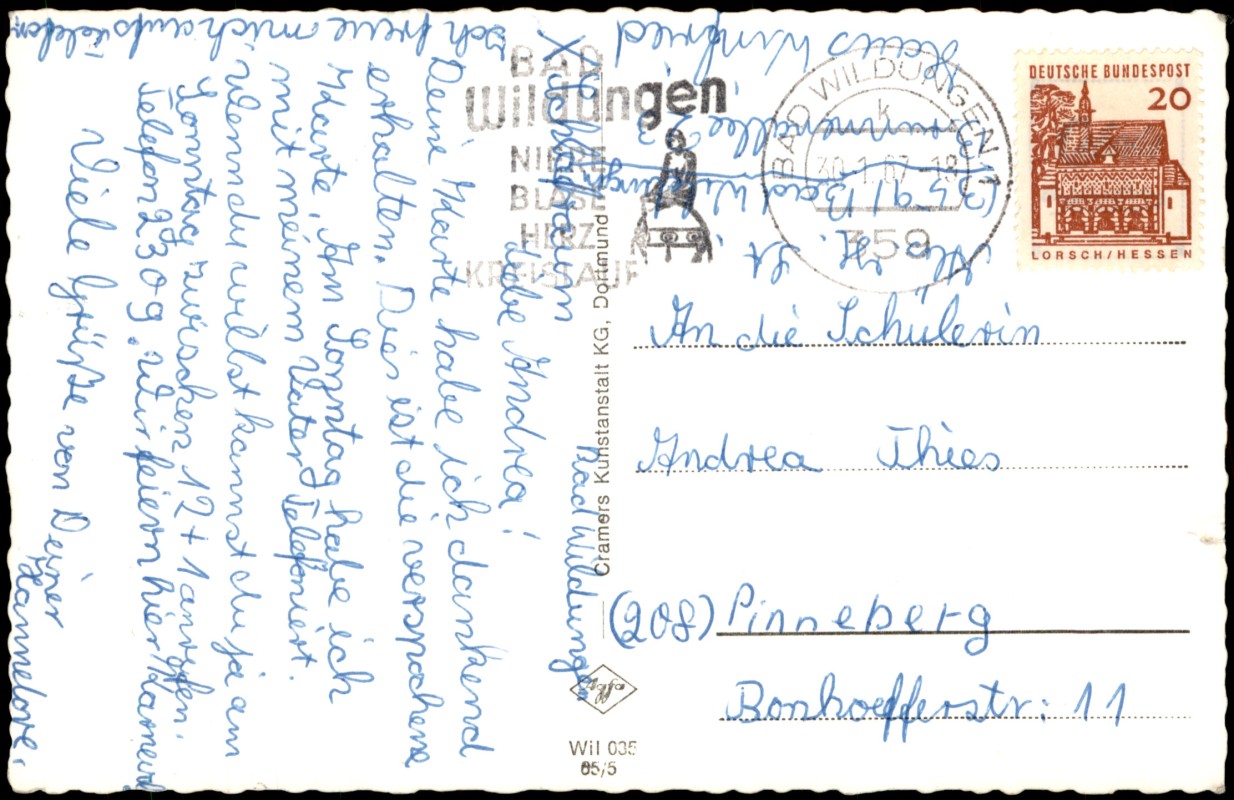 DEUTSCHE BUNDESPOST
20
LORSCH/HESSEN
BAD WILDUNGEN 1
k
30.1.67-18
359
BAD
Wildungen
NIERE
BLASE
HERZ
KREISLAUF
Haus Winfried
Brunnenallee 3
(359) Bad Wildungen
An die Schülerin
Andrea Thies
(208) Pinneberg
Bonhoefferstr: 11
Cramers Kunstanstalt KG, Dortmund
Agfa
Wil 035
65/5
Bad Wildungen
Liebe Andrea!
Deine Karte habe ich dankend
erhalten. Dies ist die versprochene
Karte. Am Sonntag habe ich
mit meinem Vater Telefoniert.
Wenn du willst kannst du ja am
Sonntag zwischen 12 + 1 anrufen.
Telefon 2309. Wir feiern hier Karneval
Viele Grüße von Deiner
Hannelore.
Ich freue mich aufs Telefon